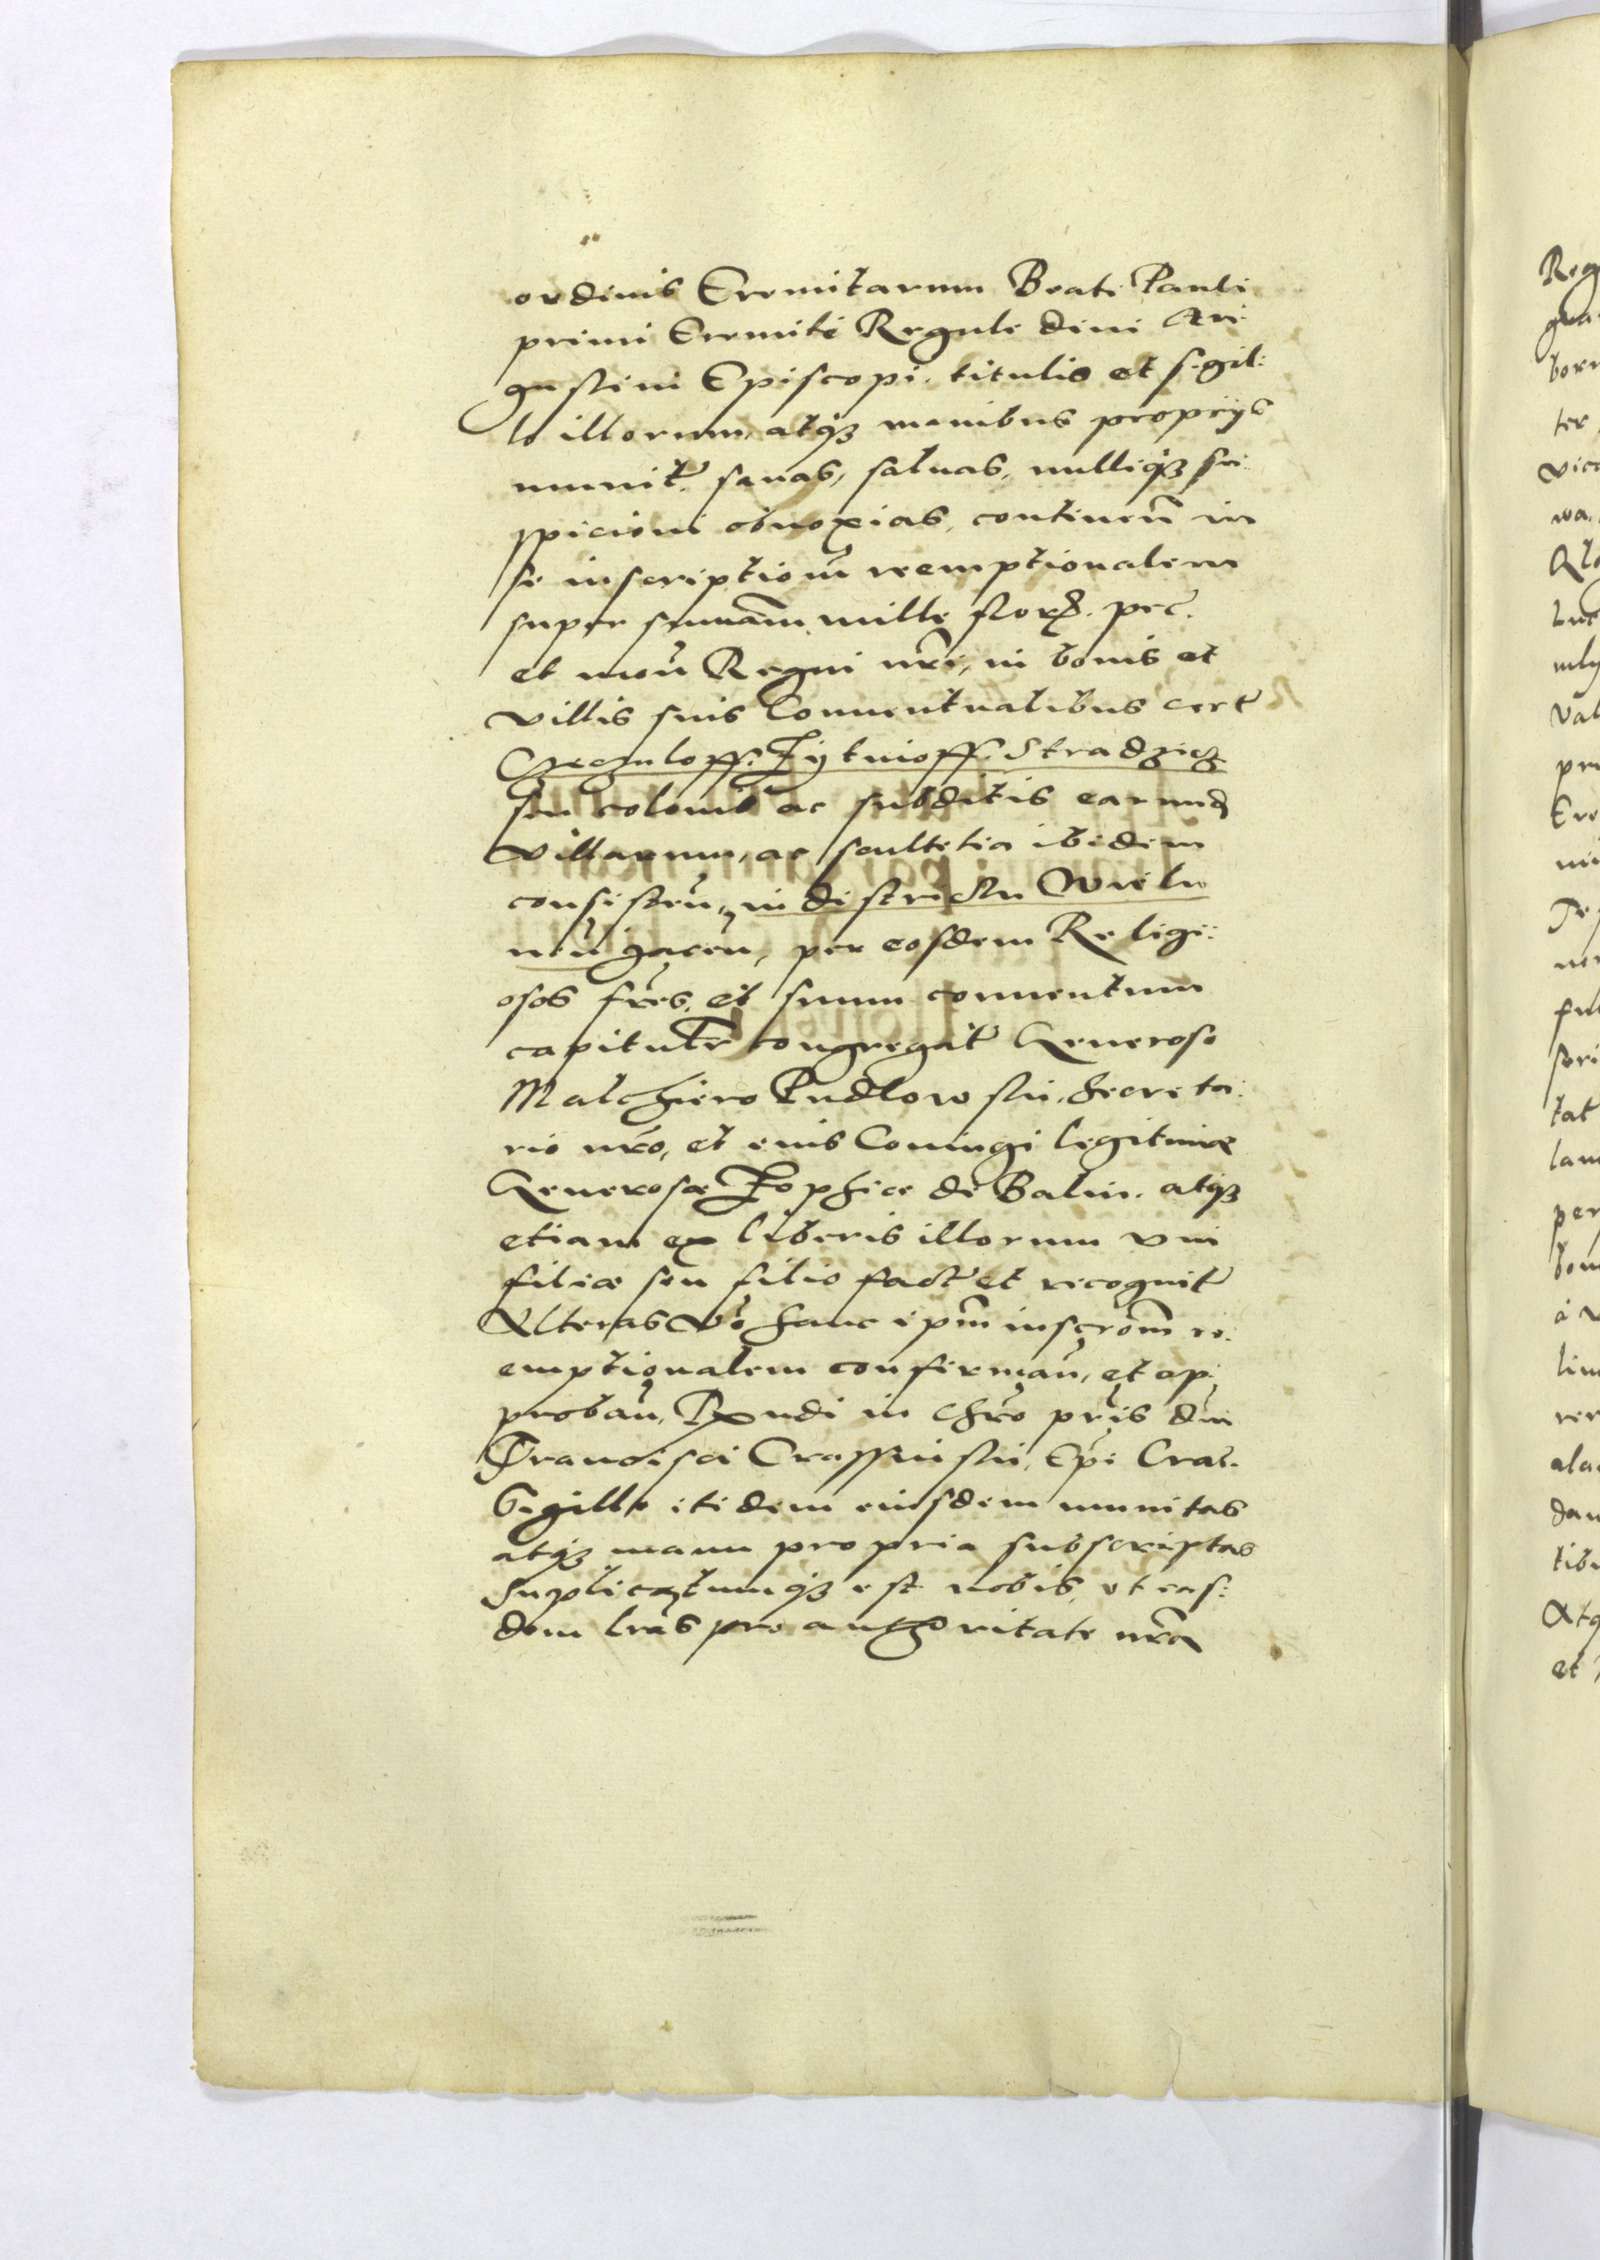 ordinis Eremitarum Beati Pauli
primi Eremite Regule diui Au
gustini Episcopi. titulis et sigil:
lo illorum, atq3 manibus proprijs
munit. sanas, saluas, nulliq3 su
spicioni obnoxias, continen in
se inscriptiom reemptionalem
super summam mille flor. pec.
et mon Regni nri, in bonis et
villis suis Conuentualibus cert
Zytnioff. Stradziecz
seu colonis ac subditis earund
villarum, ac scultetia ibidem
consisten, in districtu Wielu
nen jacen, per eosdem Religi:
osos fres, et suum conuentum
capitulr congregat Generoso
Malchiero Pudlowski, Secreta:
rio nro, et eius Coniugi legitimæ
Generosæ Zophiæ de Balin. atq3
etiam ex liberis illorum vni
filiæ seu filio fact et recognit
Alteras vo hanc ipm inscrom re:
emptionalem confirman, et ap:
proban, Rxndi in Chro pris dni
Francisci Crassinski, Epi Crac.
Sigillo itidem eiusdem munitas
atq3 manu propria subscriptas
Supplicatumq3 est nobis, vt eas:
dem lras pro authoritate nra